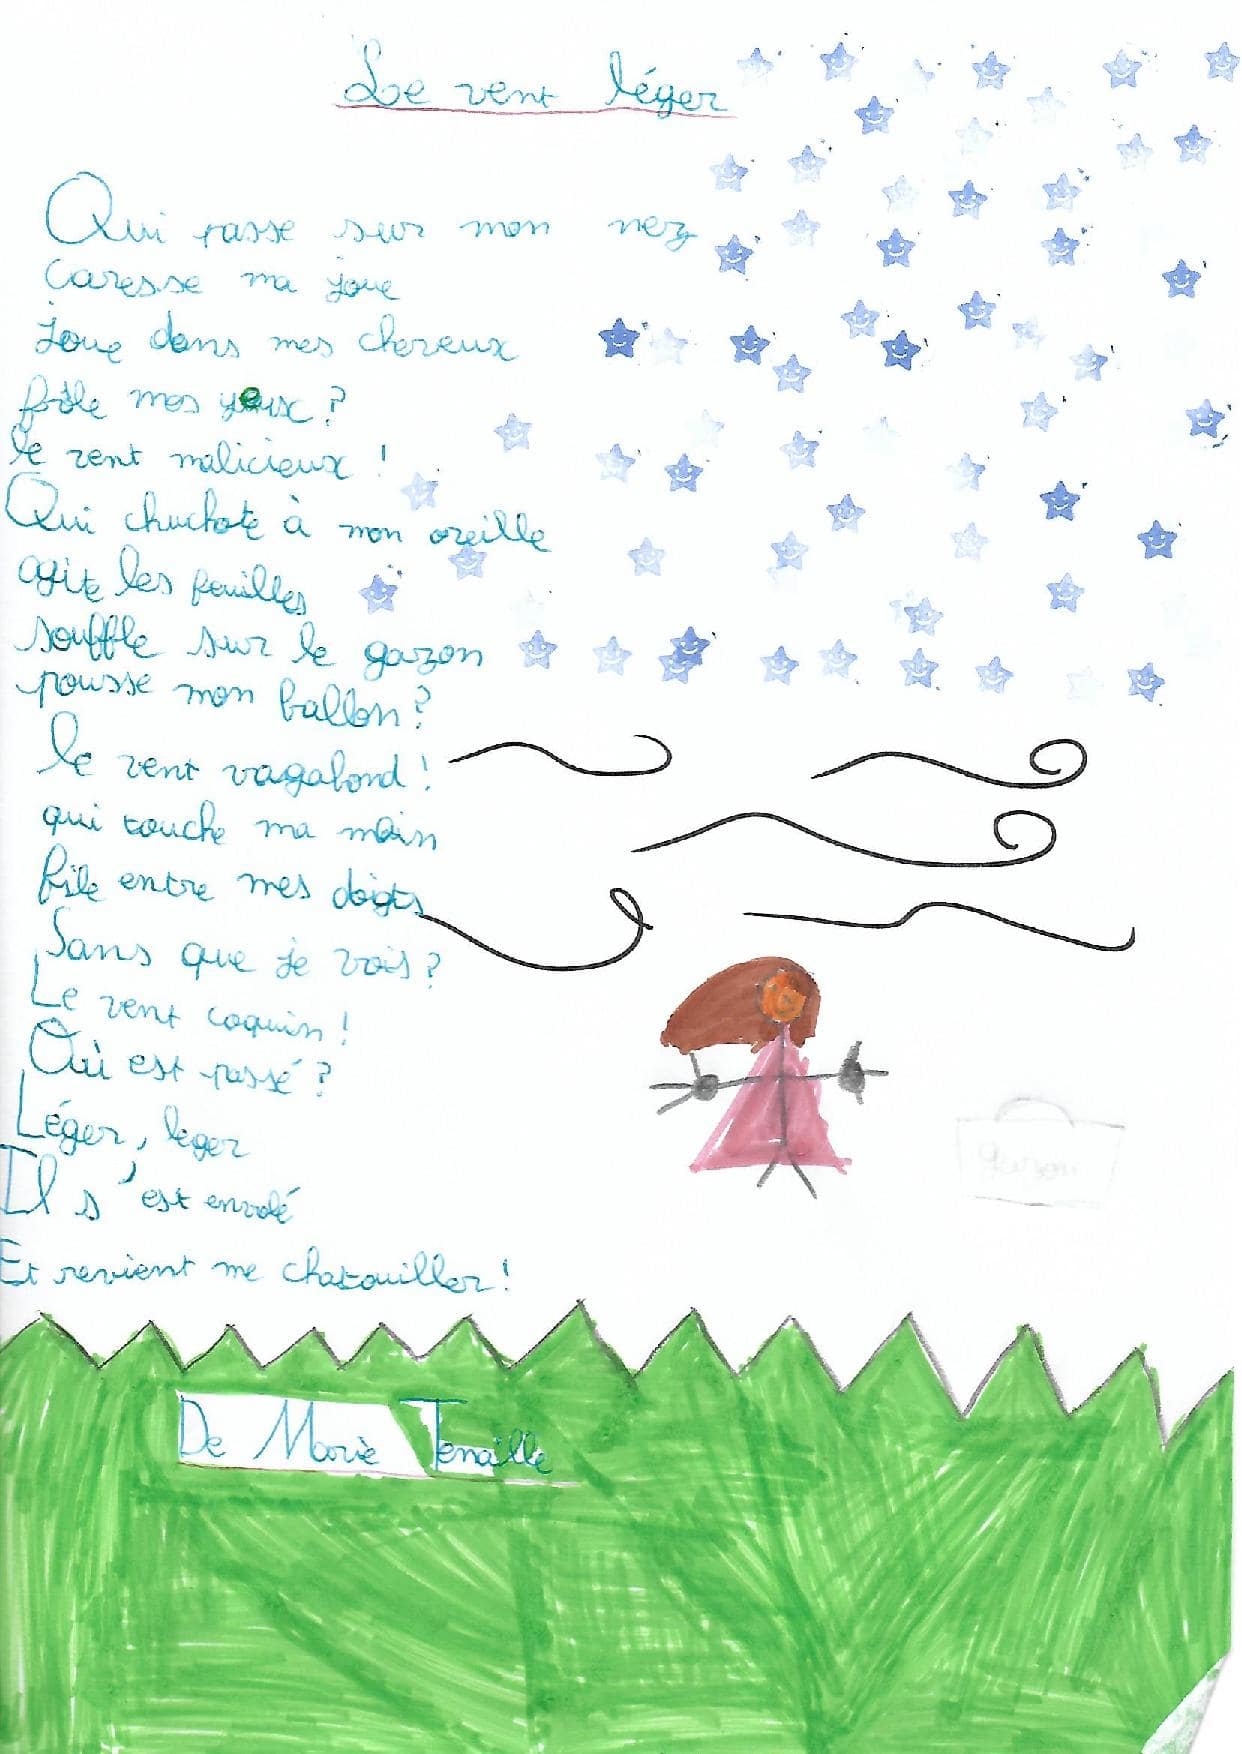 Le vent léger
Qui passe sur mon nez
Caresse ma joue
joue dans mes cheveux
frôle mes yeux ?
le vent malicieux !
Qui chuchote à mon oreille
agite les feuilles
souffle sur le gazon
pousse mon ballon ?
le vent vagabond !
qui touche ma main
file entre mes doigts
Sans que je vois ?
Le vent coquin !
Où est passé ?
Léger, leger
Il s'est envolé
Et revient me chatouiller !
De Marie Tenaille